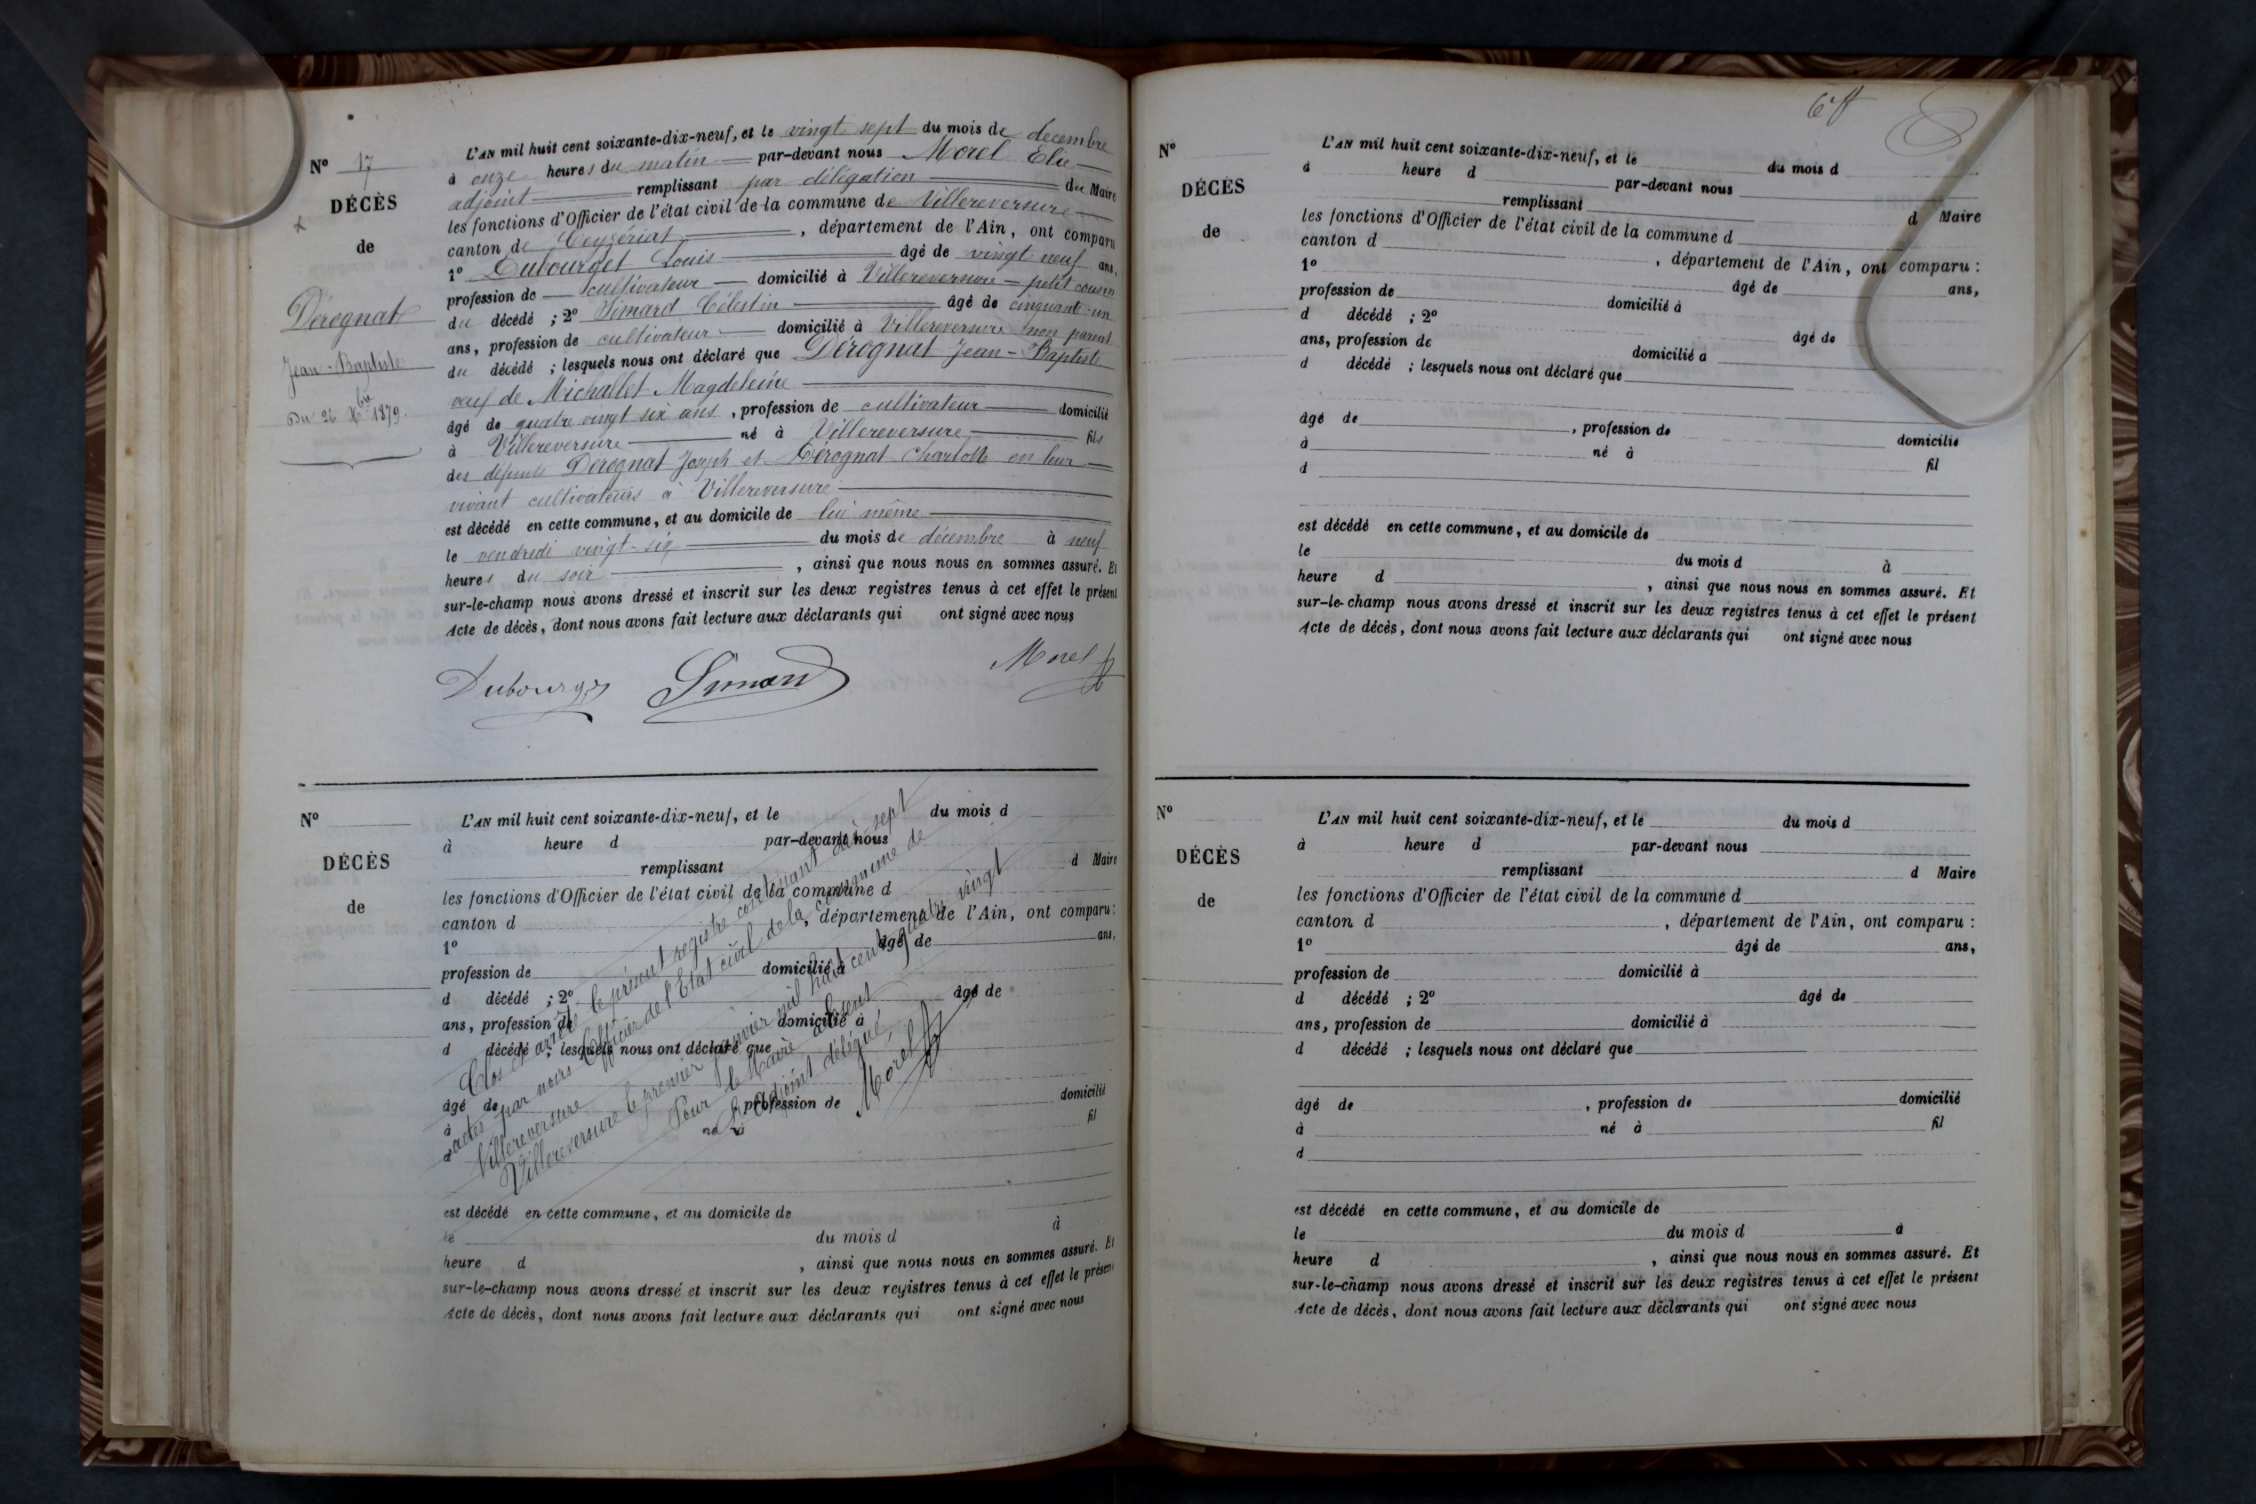 Nº 17
DÉCÈS
de
Dérognat
Jean-Baptiste
Du 26 Xbre 1879.
L'AN mil huit cent soixante-dix-neuf, et le vingt sept du mois de décembre
à onze heures du matin par-devant nous Morel Élie
adjoint remplissant par délégation du Maire
les fonctions d'Officier de l'état civil de la commune de Villereversure
canton de Ceyzériat, département de l'Ain, ont comparu
1º Dubourget Louis âgé de vingt neuf ans,
profession de cultivateur domicilié à Villereversure petit cousin
du décédé ; 2º Simard Célestin âgé de cinquante-un
ans, profession de cultivateur domicilié à Villereversure non parent
du décédé ; lesquels nous ont déclaré que Dérognat Jean-Baptiste
veuf de Michallet Magdeleine
âgé de quatre vingt six ans, profession de cultivateur domicilié
à Villereversure né à Villereversure fils
des défunts Dérognat Joseph et Dérognat Charlotte en leur
vivant cultivateurs à Villereversure
est décédé en cette commune, et au domicile de lui même
le vendredi vingt-six du mois de décembre à neuf
heures du soir, ainsi que nous nous en sommes assuré. Et
sur-le-champ nous avons dressé et inscrit sur les deux registres tenus à cet effet le présent
Acte de décès, dont nous avons fait lecture aux déclarants qui ont signé avec nous
Dubourget Simard Morel
Nº
DÉCÈS
de
L'AN mil huit cent soixante-dix-neuf, et le du mois d
à heure d par-devant nous
remplissant d Maire
les fonctions d'Officier de l'état civil de la commune d
canton d , département de l'Ain, ont comparu :
1º âgé de ans,
profession de domicilié à
d décédé ; 2º âgé de
ans, profession de domicilié à
d décédé ; lesquels nous ont déclaré que
âgé de , profession de domicilié
à né à fil
d
est décédé en cette commune, et au domicile de
le du mois d à
heure d , ainsi que nous nous en sommes assuré. Et
sur-le-champ nous avons dressé et inscrit sur les deux registres tenus à cet effet le présent
Acte de décès, dont nous avons fait lecture aux déclarants qui ont signé avec nous
Clos et arrêté le présent registre contenant dix-sept
actes par nous Officier de l'Etat civil de la commune de
Villereversure
Villereversure le premier janvier mil huit cent quatre vingt
Pour le Maire absent
L'Adjoint délégué,
Morel
Nº
DÉCÈS
de
L'AN mil huit cent soixante-dix-neuf, et le du mois d
à heure d par-devant nous
remplissant d Maire
les fonctions d'Officier de l'état civil de la commune d
canton d , département de l'Ain, ont comparu :
1º âgé de ans,
profession de domicilié à
d décédé ; 2º âgé de
ans, profession de domicilié à
d décédé ; lesquels nous ont déclaré que
âgé de , profession de domicilié
à né à fil
d
est décédé en cette commune, et au domicile de
le du mois d à
heure d , ainsi que nous nous en sommes assuré. Et
sur-le-champ nous avons dressé et inscrit sur les deux registres tenus à cet effet le présent
Acte de décès, dont nous avons fait lecture aux déclarants qui ont signé avec nous
Nº
DÉCÈS
de
L'AN mil huit cent soixante-dix-neuf, et le du mois d
à heure d par-devant nous
remplissant d Maire
les fonctions d'Officier de l'état civil de la commune d
canton d , département de l'Ain, ont comparu :
1º âgé de ans,
profession de domicilié à
d décédé ; 2º âgé de
ans, profession de domicilié à
d décédé ; lesquels nous ont déclaré que
âgé de , profession de domicilié
à né à fil
d
est décédé en cette commune, et au domicile de
le du mois d à
heure d , ainsi que nous nous en sommes assuré. Et
sur-le-champ nous avons dressé et inscrit sur les deux registres tenus à cet effet le présent
Acte de décès, dont nous avons fait lecture aux déclarants qui ont signé avec nous